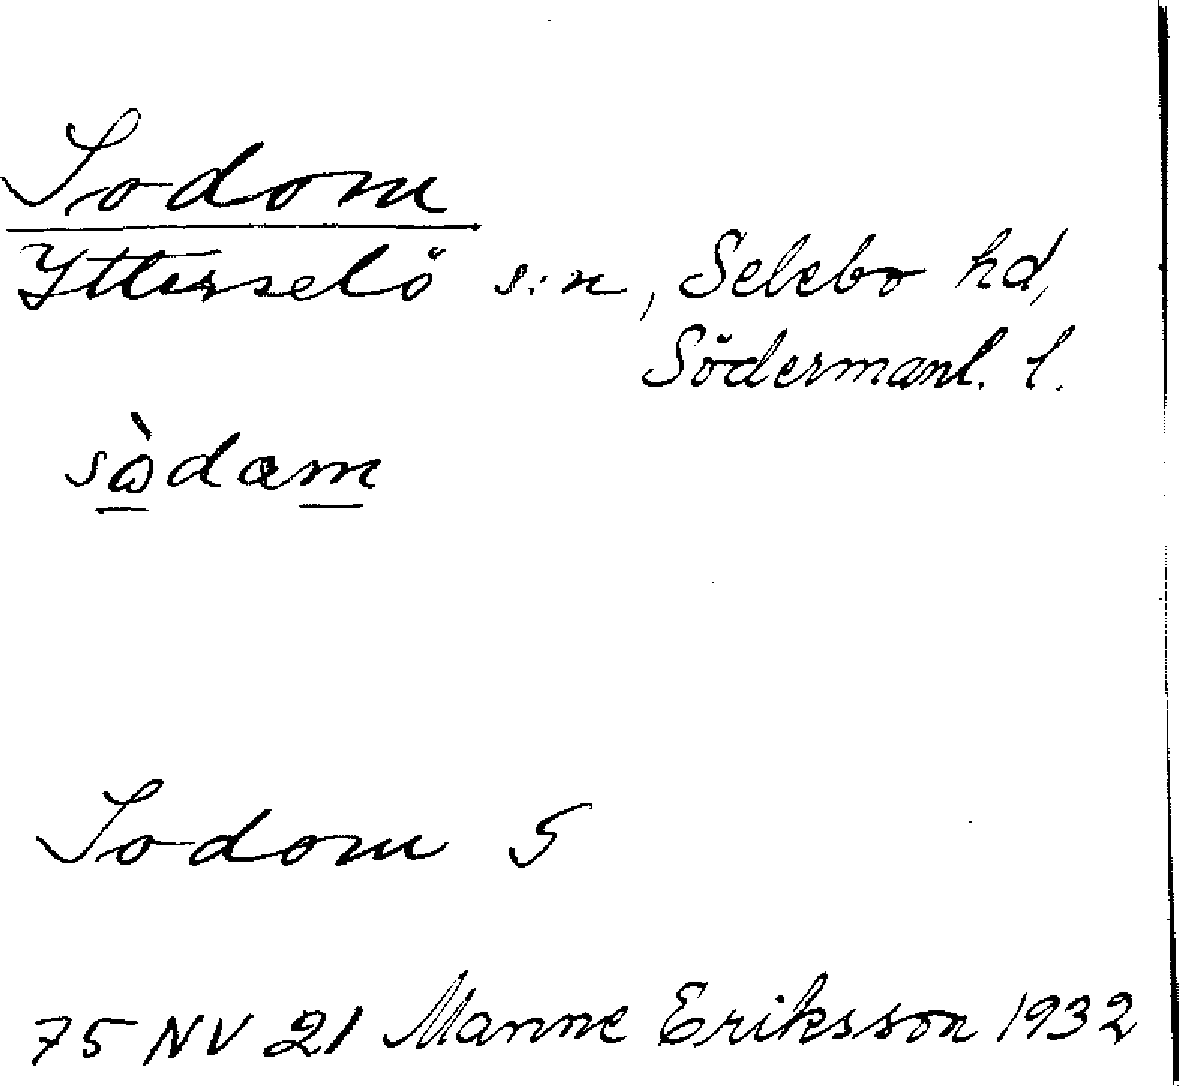 Sodom
Ytterselö s:n, Selebo hd,
Södermanl. l.
sòdam
Sodom 5
75 NV 21 Manne Eriksson 1932